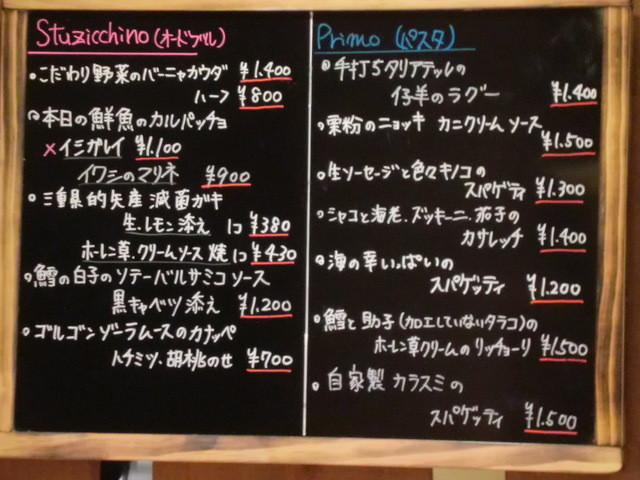 Stuzicchino (オードブル)
・こだわり野菜のバーニャカウダ ¥1.400
ハーフ ¥800
・本日の鮮魚のカルパッチョ
× イシガレイ ¥1.100
イワシのマリネ ¥900
・三重県的矢産 滅菌ガキ
生.レモン添え 1コ ¥380
ホーレン草.クリームソース焼 1コ ¥430
・鱈の白子のソテーバルサミコソース
黒キャベツ添え ¥1.200
・ゴルゴンゾーラムースのカナッペ
トチミツ.胡桃のせ ¥700
Primo (パスタ)
・手打ちタリアテッレの
仔羊のラグー ¥1.400
・栗粉のニョッキ カニクリームソース
¥1.500
・生ソーセージと色々キノコの
スパゲティ ¥1.300
・シャコと海老.ズッキーニ.茄子の
カサレッチ ¥1.400
・海の幸いっぱいの
スパゲッティ ¥1.200
・鱈と助子(加工していないタラコ)の
ホーレン草クリームのリッチョーリ ¥1.500
・自家製カラスミの
スパゲッティ ¥1.500